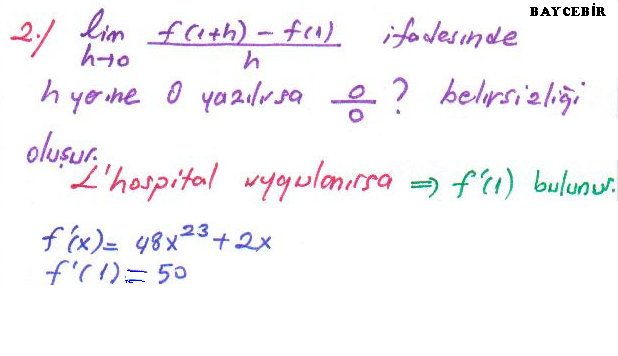 BAYCEBİR
2./ lim h→0 f(1+h) - f(1) / h ifadesinde
h yerine 0 yazılırsa 0/0 ? belirsizliği
oluşur.
L'hospital uygulanırsa ⇒ f'(1) bulunur.
f'(x) = 48x^23 + 2x
f'(1) = 50